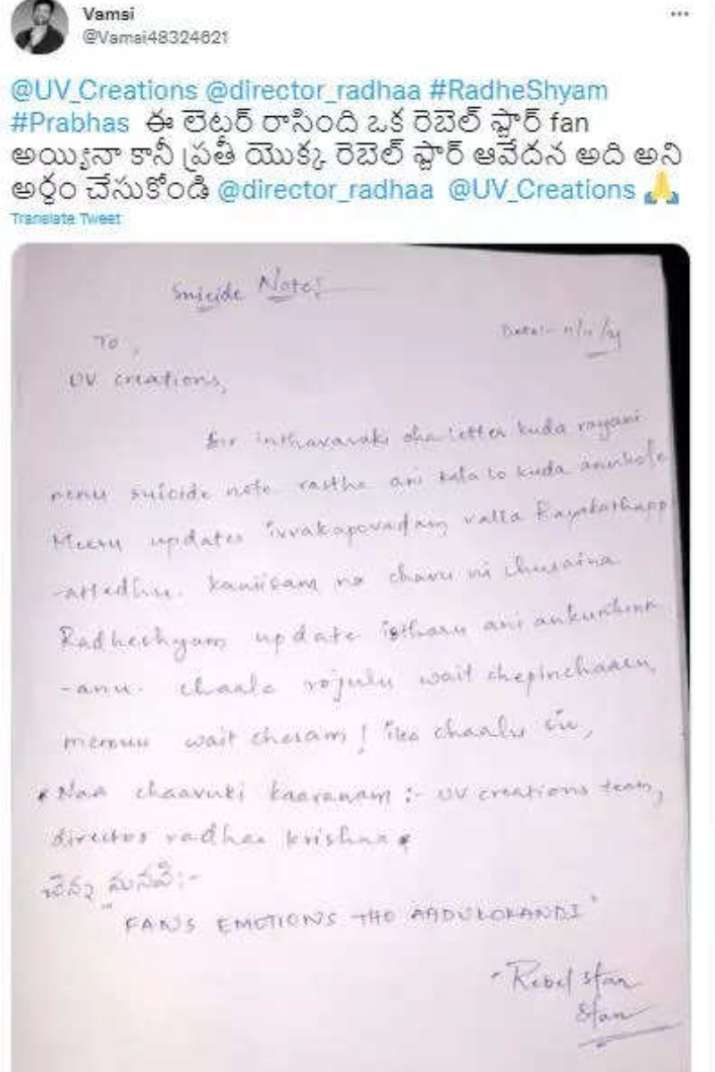 Vamsi
@Vamsi48324621
@UV_Creations @director_radhaa #RadheShyam
#Prabhas ఈ లెటర్ రాసింది ఒక రెబెల్ స్టార్ fan
అయ్యినా కానీ ప్రతీ యొక్క రెబెల్ స్టార్ ఆవేదన అది అని
అర్థం చేసుకోండి @director_radhaa @UV_Creations 🙏
Translate Tweet
Suicide Note:
To,
Date:- 11/11/21
UV creations,
Sir inthavaraki oka letter kuda rayani
nenu suicide note rastha ani kala lo kuda anukole
Meeru updates ivvakapovadam valla Rayakathapp
-attledhu. kanisam na chavu ni chusaina
Radheshyam update istharu ani ankuntunn
-anu. chaala rojulu wait chepinchaaru,
memuu wait chesam! ika chaalu sir,
* Naa chaavuki kaaranam :- UV creations team,
director radhaa krishna *
చిన్న మనవి:-
"FANS EMOTIONS THO AADUKOKANDI"
- Rebel star
fan